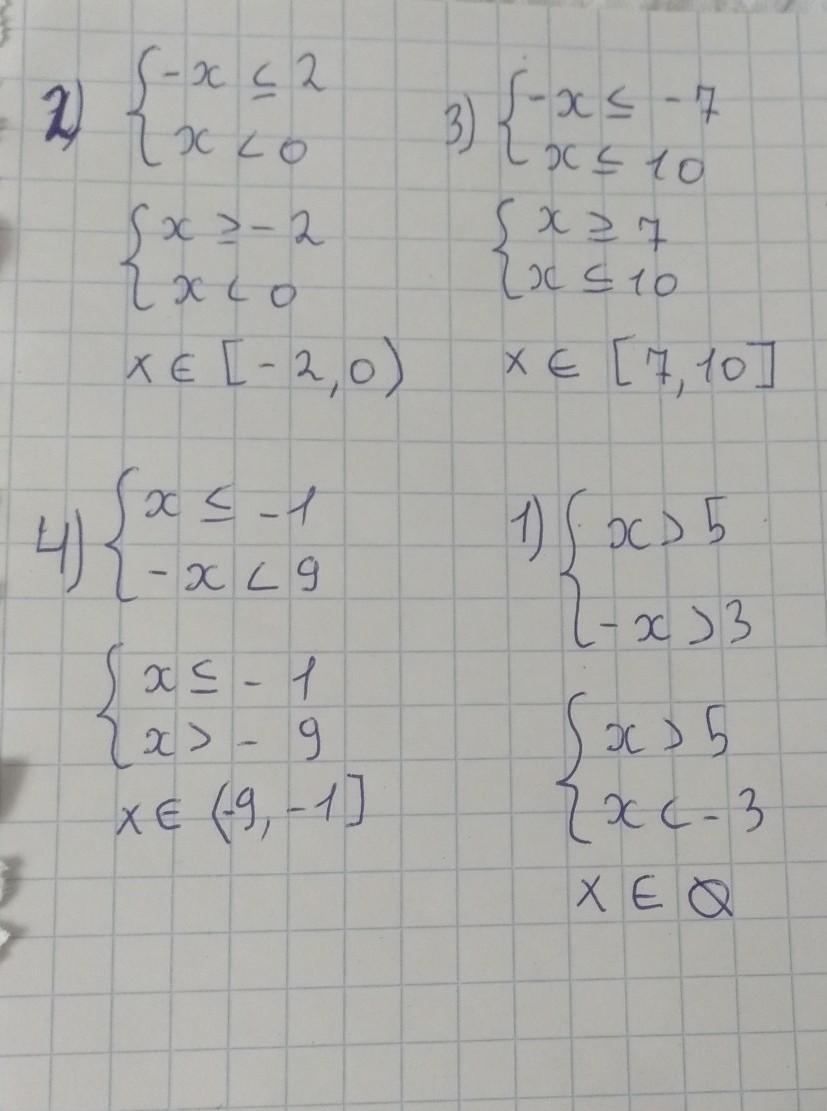 2) { -x ≤ 2
x < 0
{ x ≥ -2
x < 0
x ∈ [-2,0)
3) { -x ≤ -7
x ≤ 10
{ x ≥ 7
x ≤ 10
x ∈ [7,10]
4) { x ≤ -1
-x < 9
{ x ≤ -1
x > -9
x ∈ (-9,-1]
1) { x > 5
-x > 3
{ x > 5
x < -3
x ∈ ∅